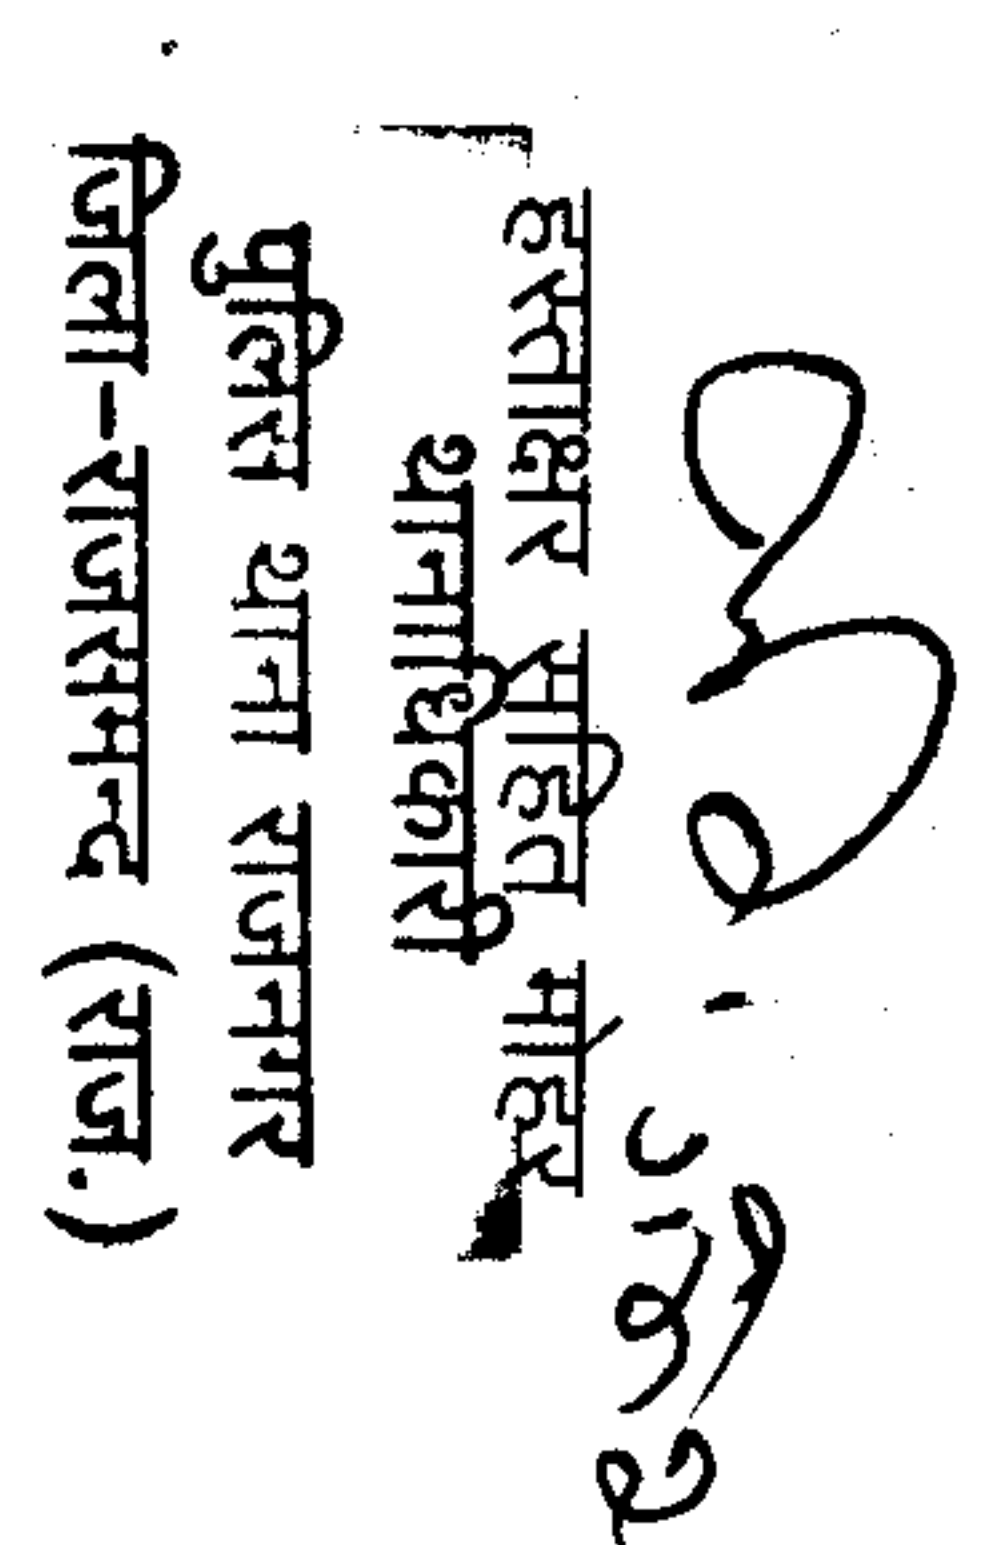 हस्ताक्षर सहित मोहर
थानाधिकारी
पुलिस थाना राजनगर
जिला-राजसमन्द (राज.)